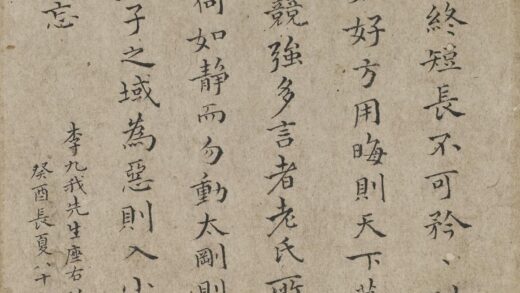 終短長不可矜、
好方用晦則天下莫
競強多言者老氏所
如静而勿動太剛則
子之域為惡則入小
忘
李九我先生座右
癸酉長夏八十